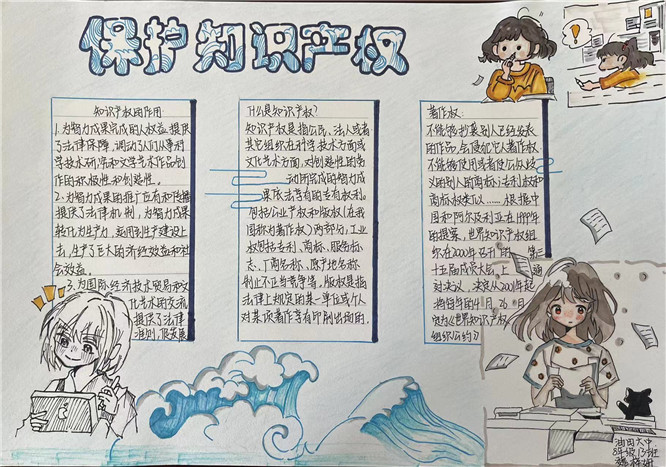 保护知识产权
知识产权的作用
1.为智力成果完成的人权益提供
了法律保障,调动了人们从事科
学技术研究和文学艺术作品创
作的积极性和创造性。
2.为智力成果的推广应用和传播
提供了法律机制,为智力成果
转化为生产力,运用到生产建设上
去,生产了巨大的济经效益和社
会效益。
3.为国际经济技术贸易和文
化艺术的交流
提供了法律
准则,促发展
什么是知识产权?
知识产权是指公民、法人或者
其它组织在科学技术方面或
文化艺术方面,对创造性的劳
动所完成的智力成
果依法享有的专有权利。
包括工业产权和版权(在我
国称为著作权)两部分,工业
权包括专利、商标、服务标
志、厂商名称、原产地名称
制止不正当竞争等,版权是指
法律上规定的某一单位或个人
对某项著作享有印刷出售的.
著作权:
不能够抄袭别人已经发表
的作品,会侵犯它人著作权
不能够使用或者使公众歧
义的别人的商标,专利权和
商标权类似……根据中
国和阿尔及利亚在1999年
的提案,世界知识产权组
织在2000年召开的 第三
十五届成员大会上 通
过决议,决定从2001年起
将每年的4月26日
定为《世界知识产权
组织公约》
油田六中